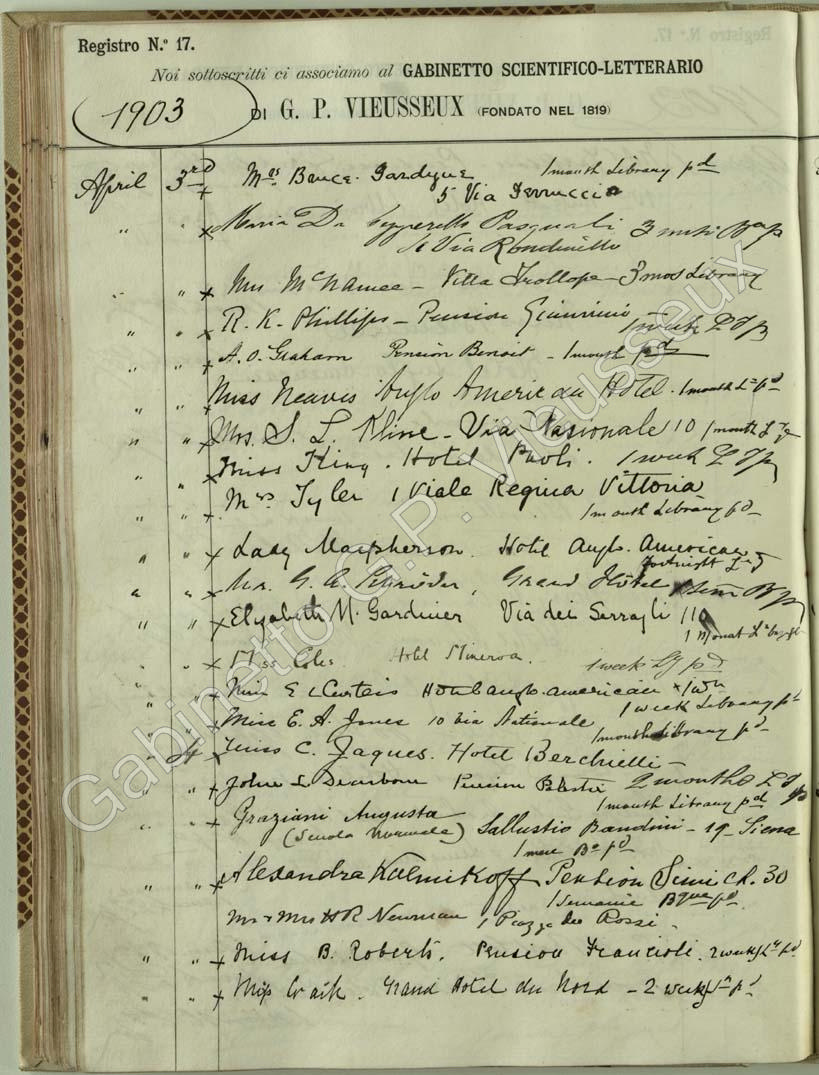 Registro N.º 17.
Noi sottoscritti ci associamo al GABINETTO SCIENTIFICO-LETTERARIO
1903
DI G. P. VIEUSSEUX (FONDATO NEL 1819)
April 3rd x Mrs Bruce Gardyne 1 month Library pd
5 Via Ferruccio
" " x Maria Da Pasquali 3 mesi
Via Rondinelli
" " x Mrs McNamee – Villa Trollope – 3 mos Library
" " x R. K. Phillips – Pension 1 week L
" " x A. O. Graham Pension Benoit – 1 month pd
" " x Miss Neaves Anglo American Hotel. 1 month L pd
" " x Mrs. S. L. Kline – Via Nasionale 10 1 month L
" " x Miss King. Hotel Paoli. 1 week L
" " x Mrs Tyler 1 Viale Regina Vittoria
1 month Library pd
" " x Lady Macpherson. Hotel Anglo. American
fortnight
" " x Mr. G. A. Grand Hôtel
" " x Elizabeth M. Gardiner Via dei Serragli 110
1 Monat
" " x Miss Coles Hotel Minerva. 1 week pd
" " x Miss E Curteis Hotel anglo-américain x
1 week Library pd
" " x Miss E. A. Jones 10 Via Nationale
1 month Library pd
" 4 x Miss C. Jaques. Hotel Berchielli –
" " x John L Dearborn Pension 2 months L
1 month Library pd
" " x Graziani Augusta
(Scuola Normale) Sallustio Bandini – 19 – Siena
1 mese pd
" " x Alexandra Kalmikoff Pension Simi ch. 30
1 semaine pd
Mr & Mrs H R Newman 1 Piazza dei Rossi.
" " x Miss B. Roberts. Pension Francioli. 2 weeks pd
" " x Miss Craik. Grand Hotel du Nord – 2 weeks pd
Gabinetto G.P. Vieusseux